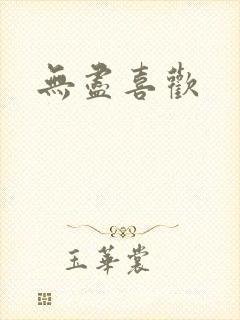 無盡喜歡
玉華裳